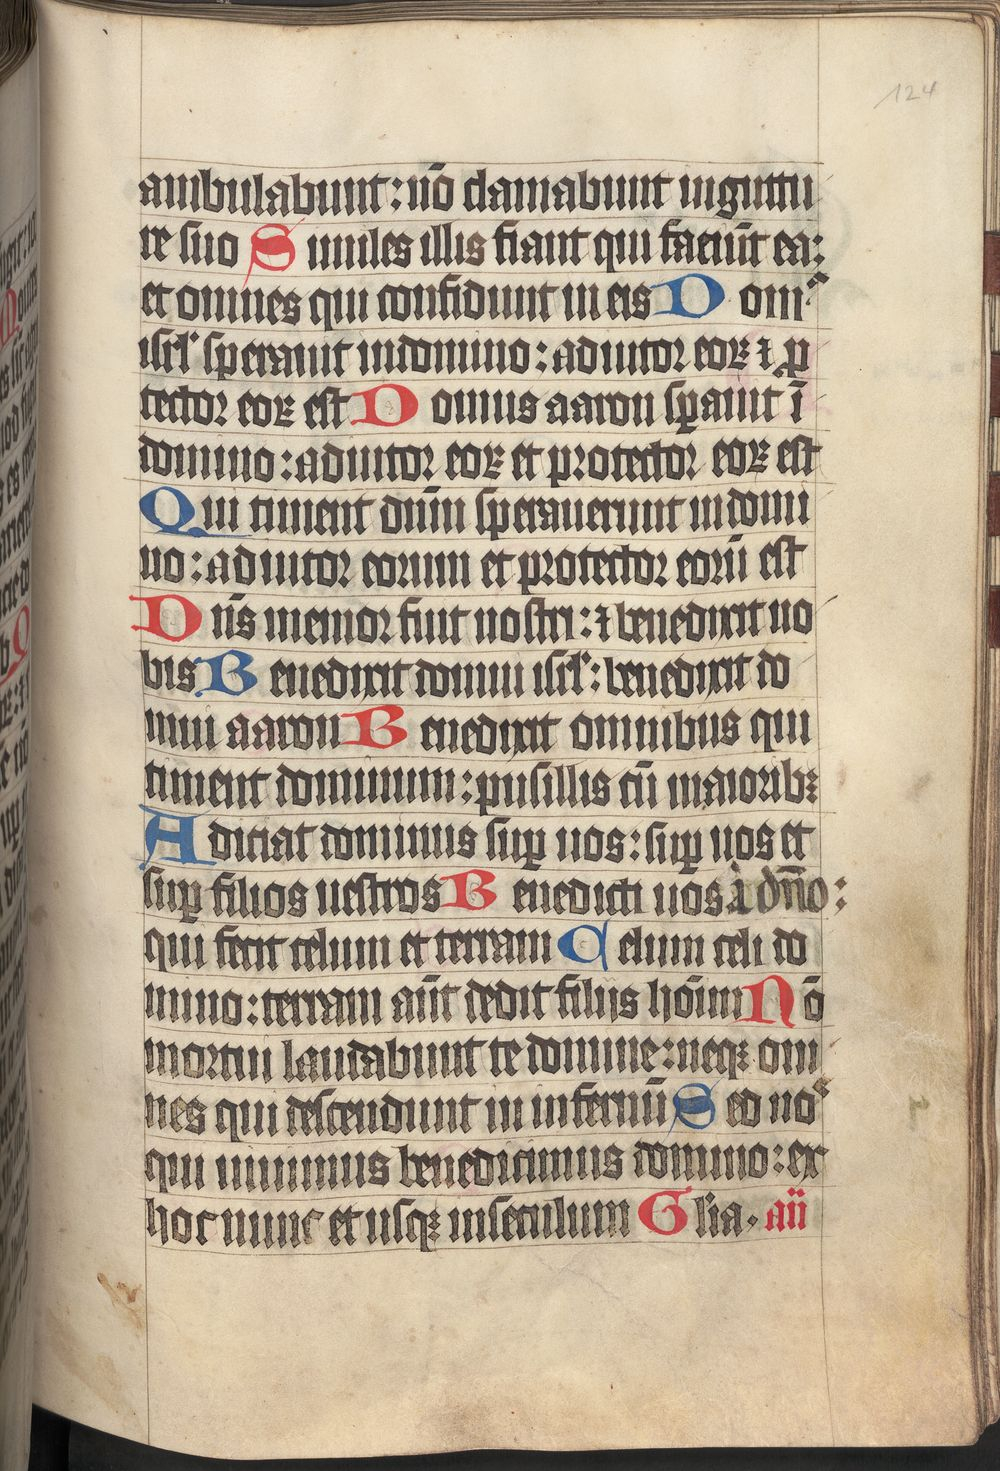 124
ambulabunt: nō clamabunt in guttu
re suo Similes illis fiant qui faciūt ea:
et omnes qui confidunt in eis Domꝰ
isrl' sperauit in domino: adiutor eoꝝ ⁊ ꝓ
tector eoꝝ est Domus aaron sꝑauit ī
domino: adiutor eoꝝ et protector eoꝝ est
Qui timent dnm̄ sperauerunt in domi
no: adiutor eorum et protector eorū est
Dn̄s memor fuit nostri: ⁊ benedixit no
bis Benedixit domui isrl': benedixit do
mui aaron Benedixit omnibus qui
timent dominum: pusillis cū maioribꝫ
Adiciat dominus suꝑ uos: suꝑ uos et
suꝑ filios uestros Benedicti uos a dn̄o:
qui fecit celum et terram Celum celi do
mino: terram aūt dedit filijs hoīm Nō
mortui laudabunt te domine: neqꝫ om
nes qui descendunt in infernū Sed noˢ
qui uiuimus benedicimus domino: ex
hoc nunc et usqꝫ in seculum Glīa. an̄